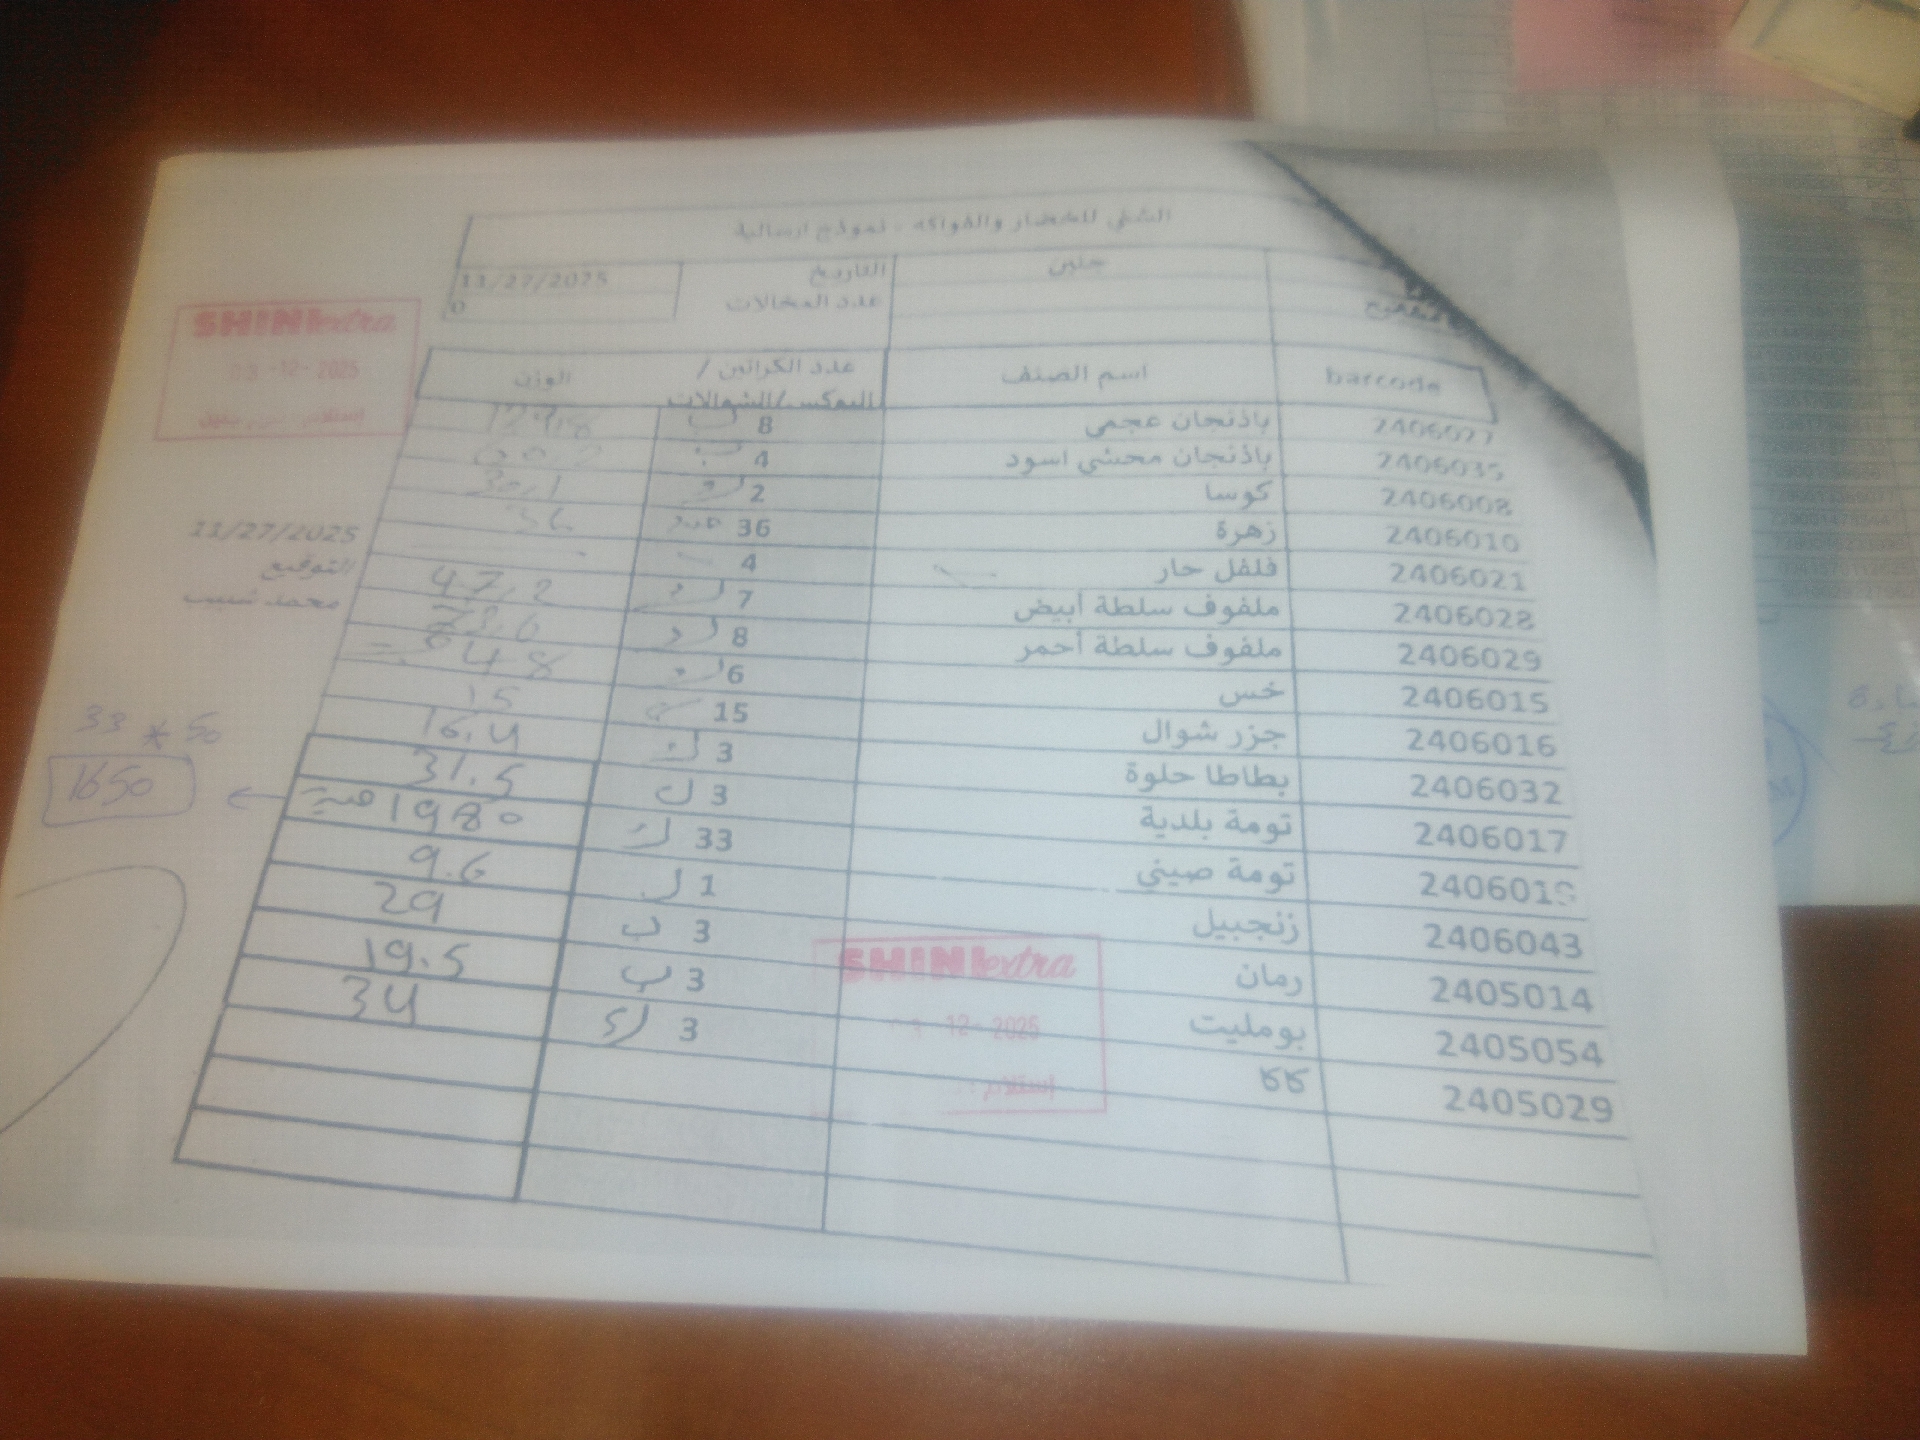 الشني للخضار والفواكه - نموذج ارسالية
جنين التاريخ 11/27/2025
عدد المخالات 0
barcode اسم الصنف عدد الكراتين / البوكس/الشوالات الوزن
2406027 باذنجان عجمي 8 ب
2406035 باذنجان محشي اسود 4 ب
2406008 كوسا 2 30,1
2406010 زهرة 36 36
2406021 فلفل حار 4
2406028 ملفوف سلطة أبيض 7 47,2
2406029 ملفوف سلطة أحمر 8 73,6
2406015 خس 6 48
2406016 جزر شوال 15 15
2406032 بطاطا حلوة 3 16.4
2406017 تومة بلدية 3 31.5
تومة صيني 33 1980 حبة
2406043 زنجبيل 1 9.6
2405014 رمان 3 ب 29
2405054 بومليت 3 ب 19.5
2405029 كاكا 3 34
SHINI extra
03-12-2025
11/27/2025
التوقيع
33 * 50
1650
SHINI extra
12-2025
إستلام